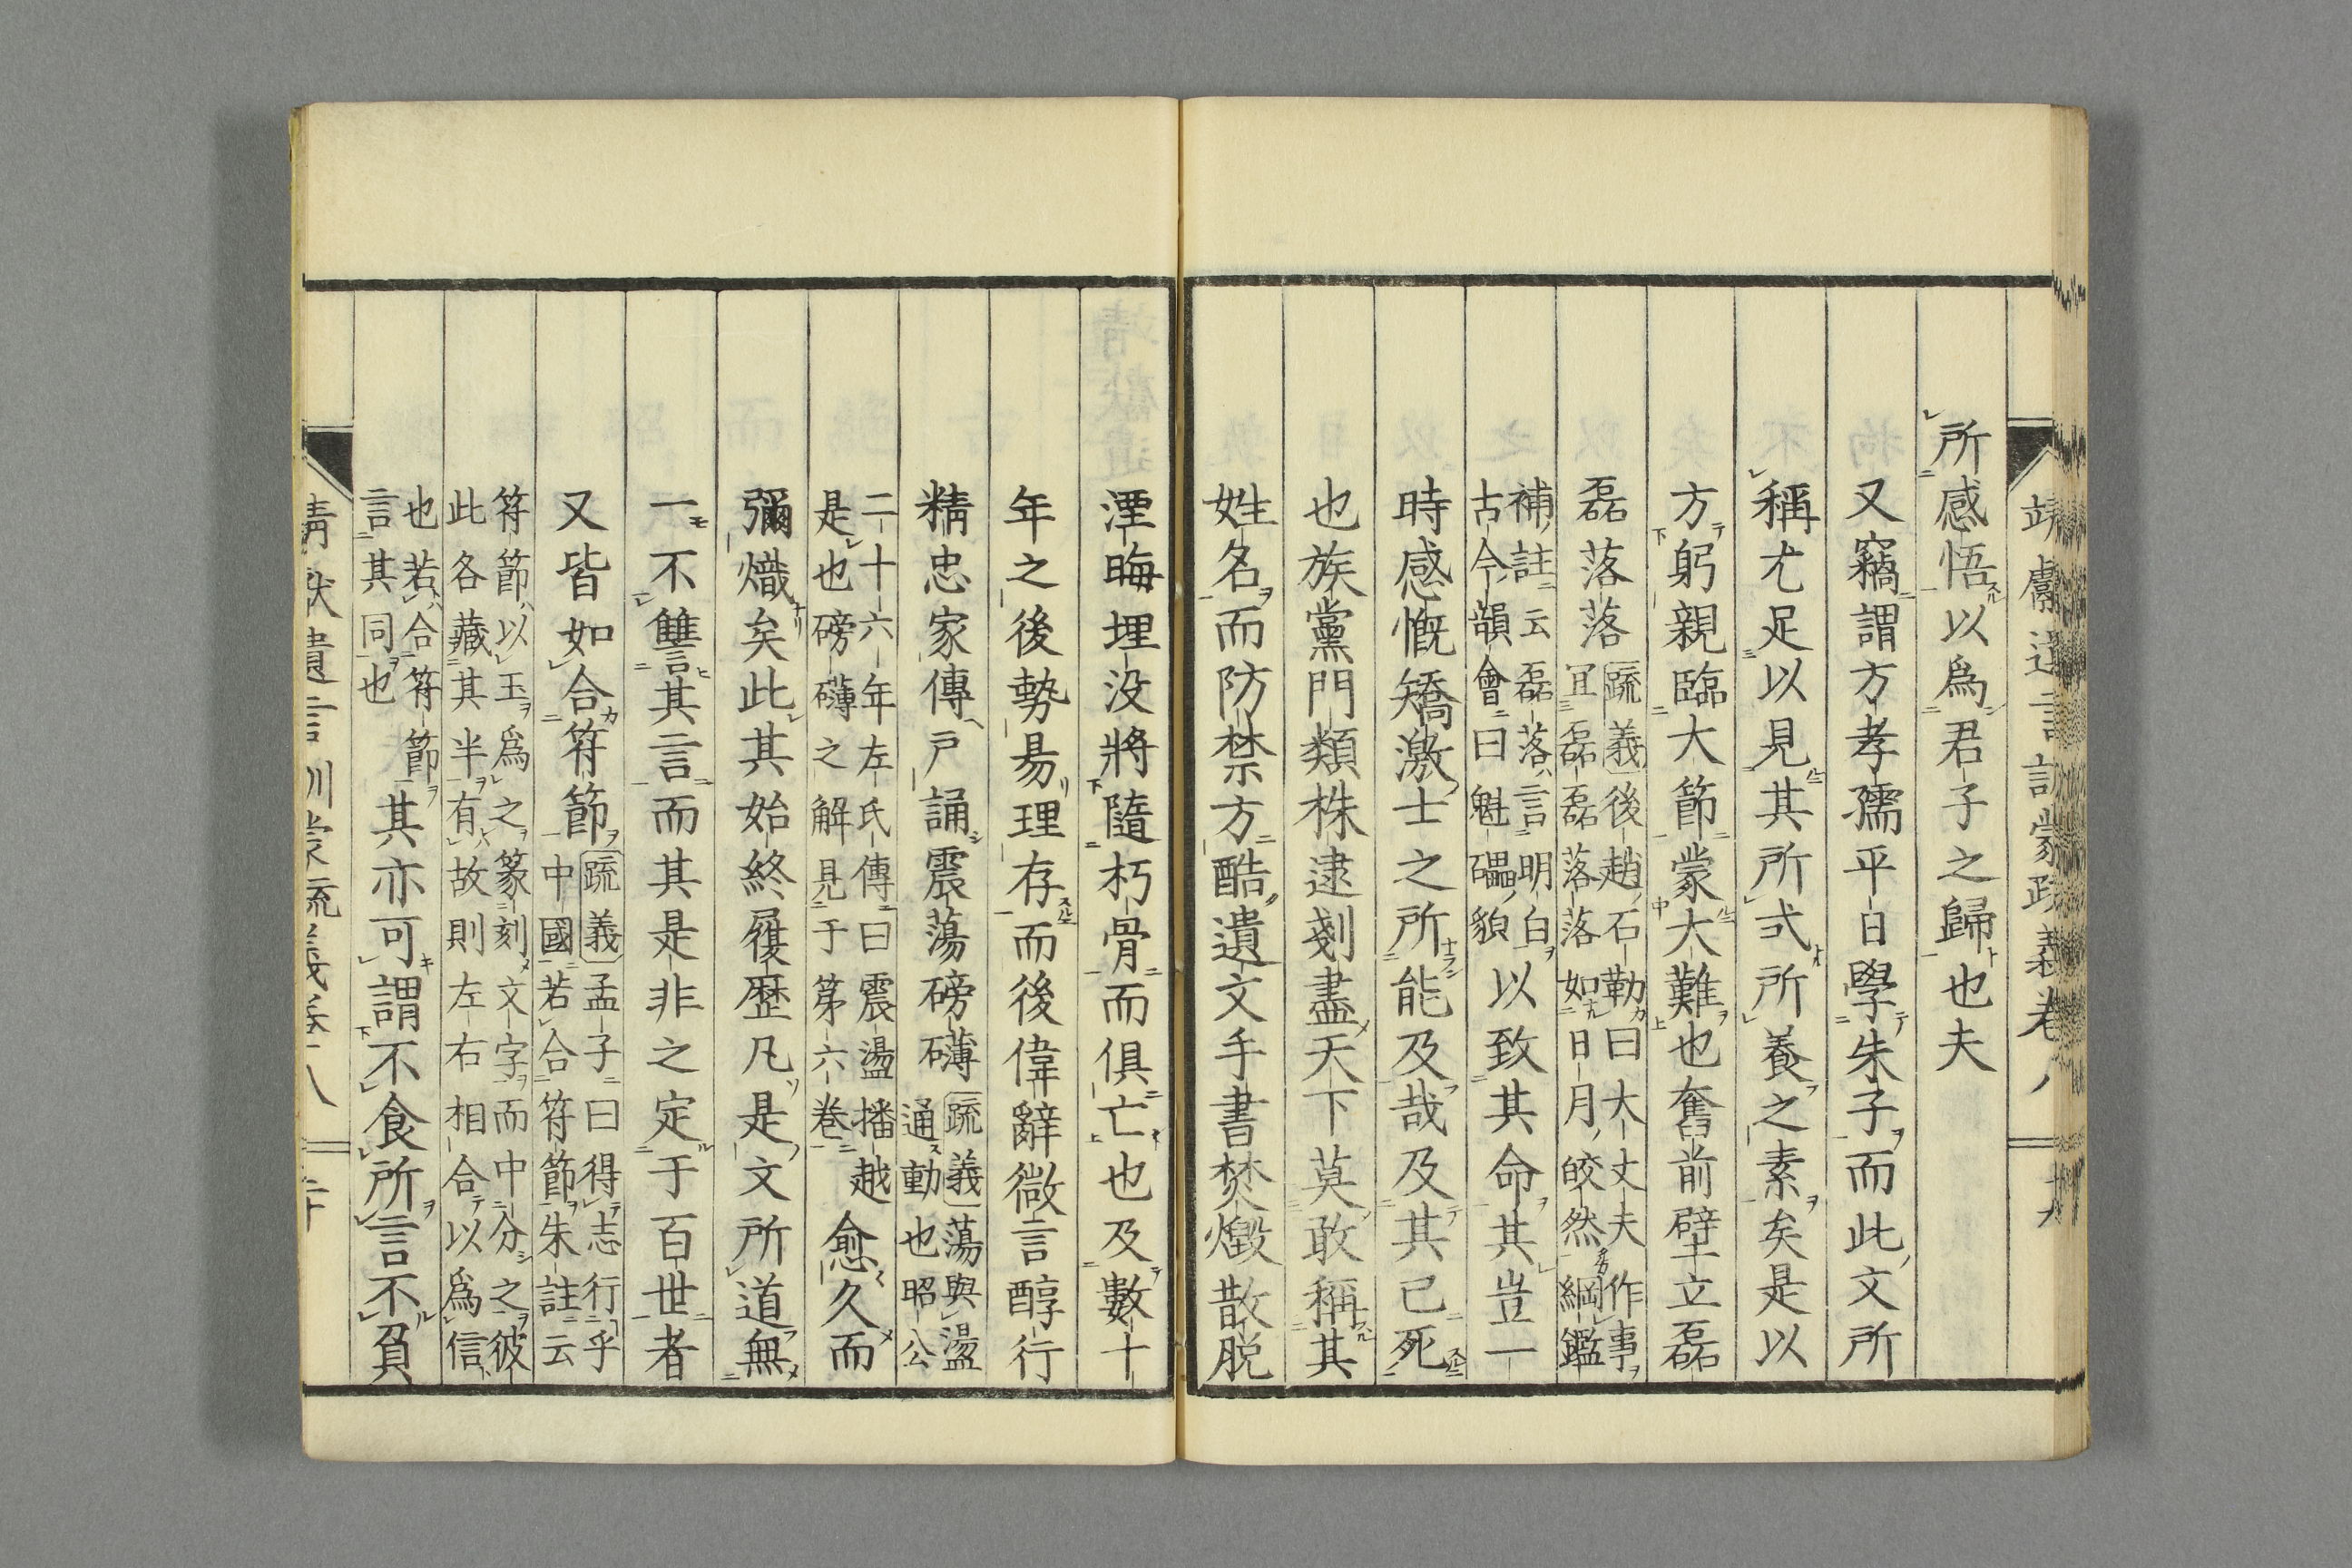 靖獻遺言訓蒙疏義卷八
所感悟以爲君子之歸也夫
又竊謂方孝孺平日學朱子而此文所
稱尤足以見其所弍所養之素矣是以
方躬親臨大節蒙大難也奮前壁立磊
磊落落疏義後趙石勒曰大丈夫作事
冝磊磊落落如日月皎然綱鑑
補註云磊落言明白以致其命其豈一
古今韻會曰魁礧貌
時感慨矯激士之所能及哉及其已死
也族黨門類株逮剗盡天下莫敢稱其
姓名而防禁方酷遺文手書焚燬散脱
湮晦埋没將隨朽骨而俱亡也及數十
年之後勢易理存而後偉辭微言醇行
精忠家傳戸誦震蕩磅礴疏義蕩與盪
通動也昭公
二十六年左氏傳曰震盪播越愈久而
是也磅礴之解見于第六卷
彌熾矣此其始終履歴凡是文所道無
一不讐其言而其是非之定于百世者
又皆如合符節疏義孟子曰得志行乎
中國若合符節朱註云
符節以玉爲之篆刻文字而中分之彼
此各藏其半有故則左右相合以爲信
也若合符節其亦可謂不食所言不負
言其同也
靖獻遺言訓蒙疏義卷八 二十